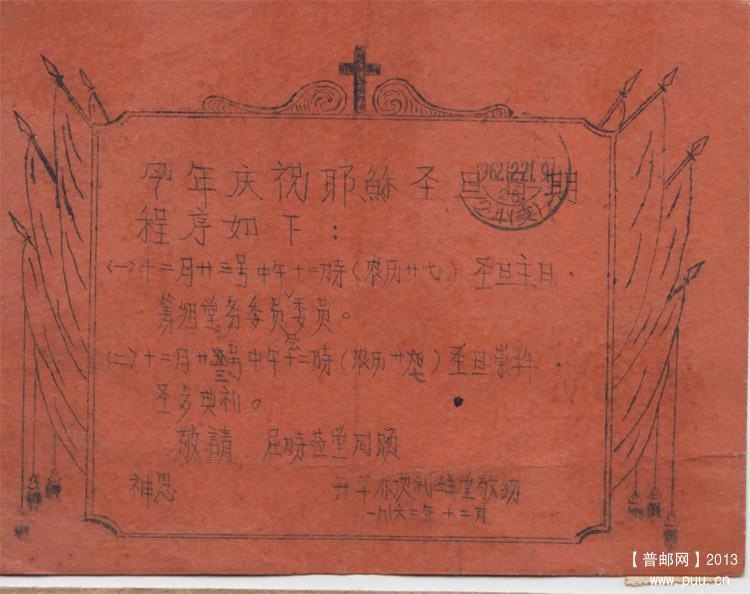 今年庆祝耶稣圣旦日期
程序如下：
(一)十二月廿三号中午十二時(农历廿七)圣旦主日，
筹组堂务委员委员。
(二)十二月廿三号中午十二時(农历廿七)圣旦崇拜，
圣歺典礼。
敬請 屆時莅堂同领
神恩
礼拜堂敬约
一九六二年十二月
【普邮网】2013
www.puu.cn